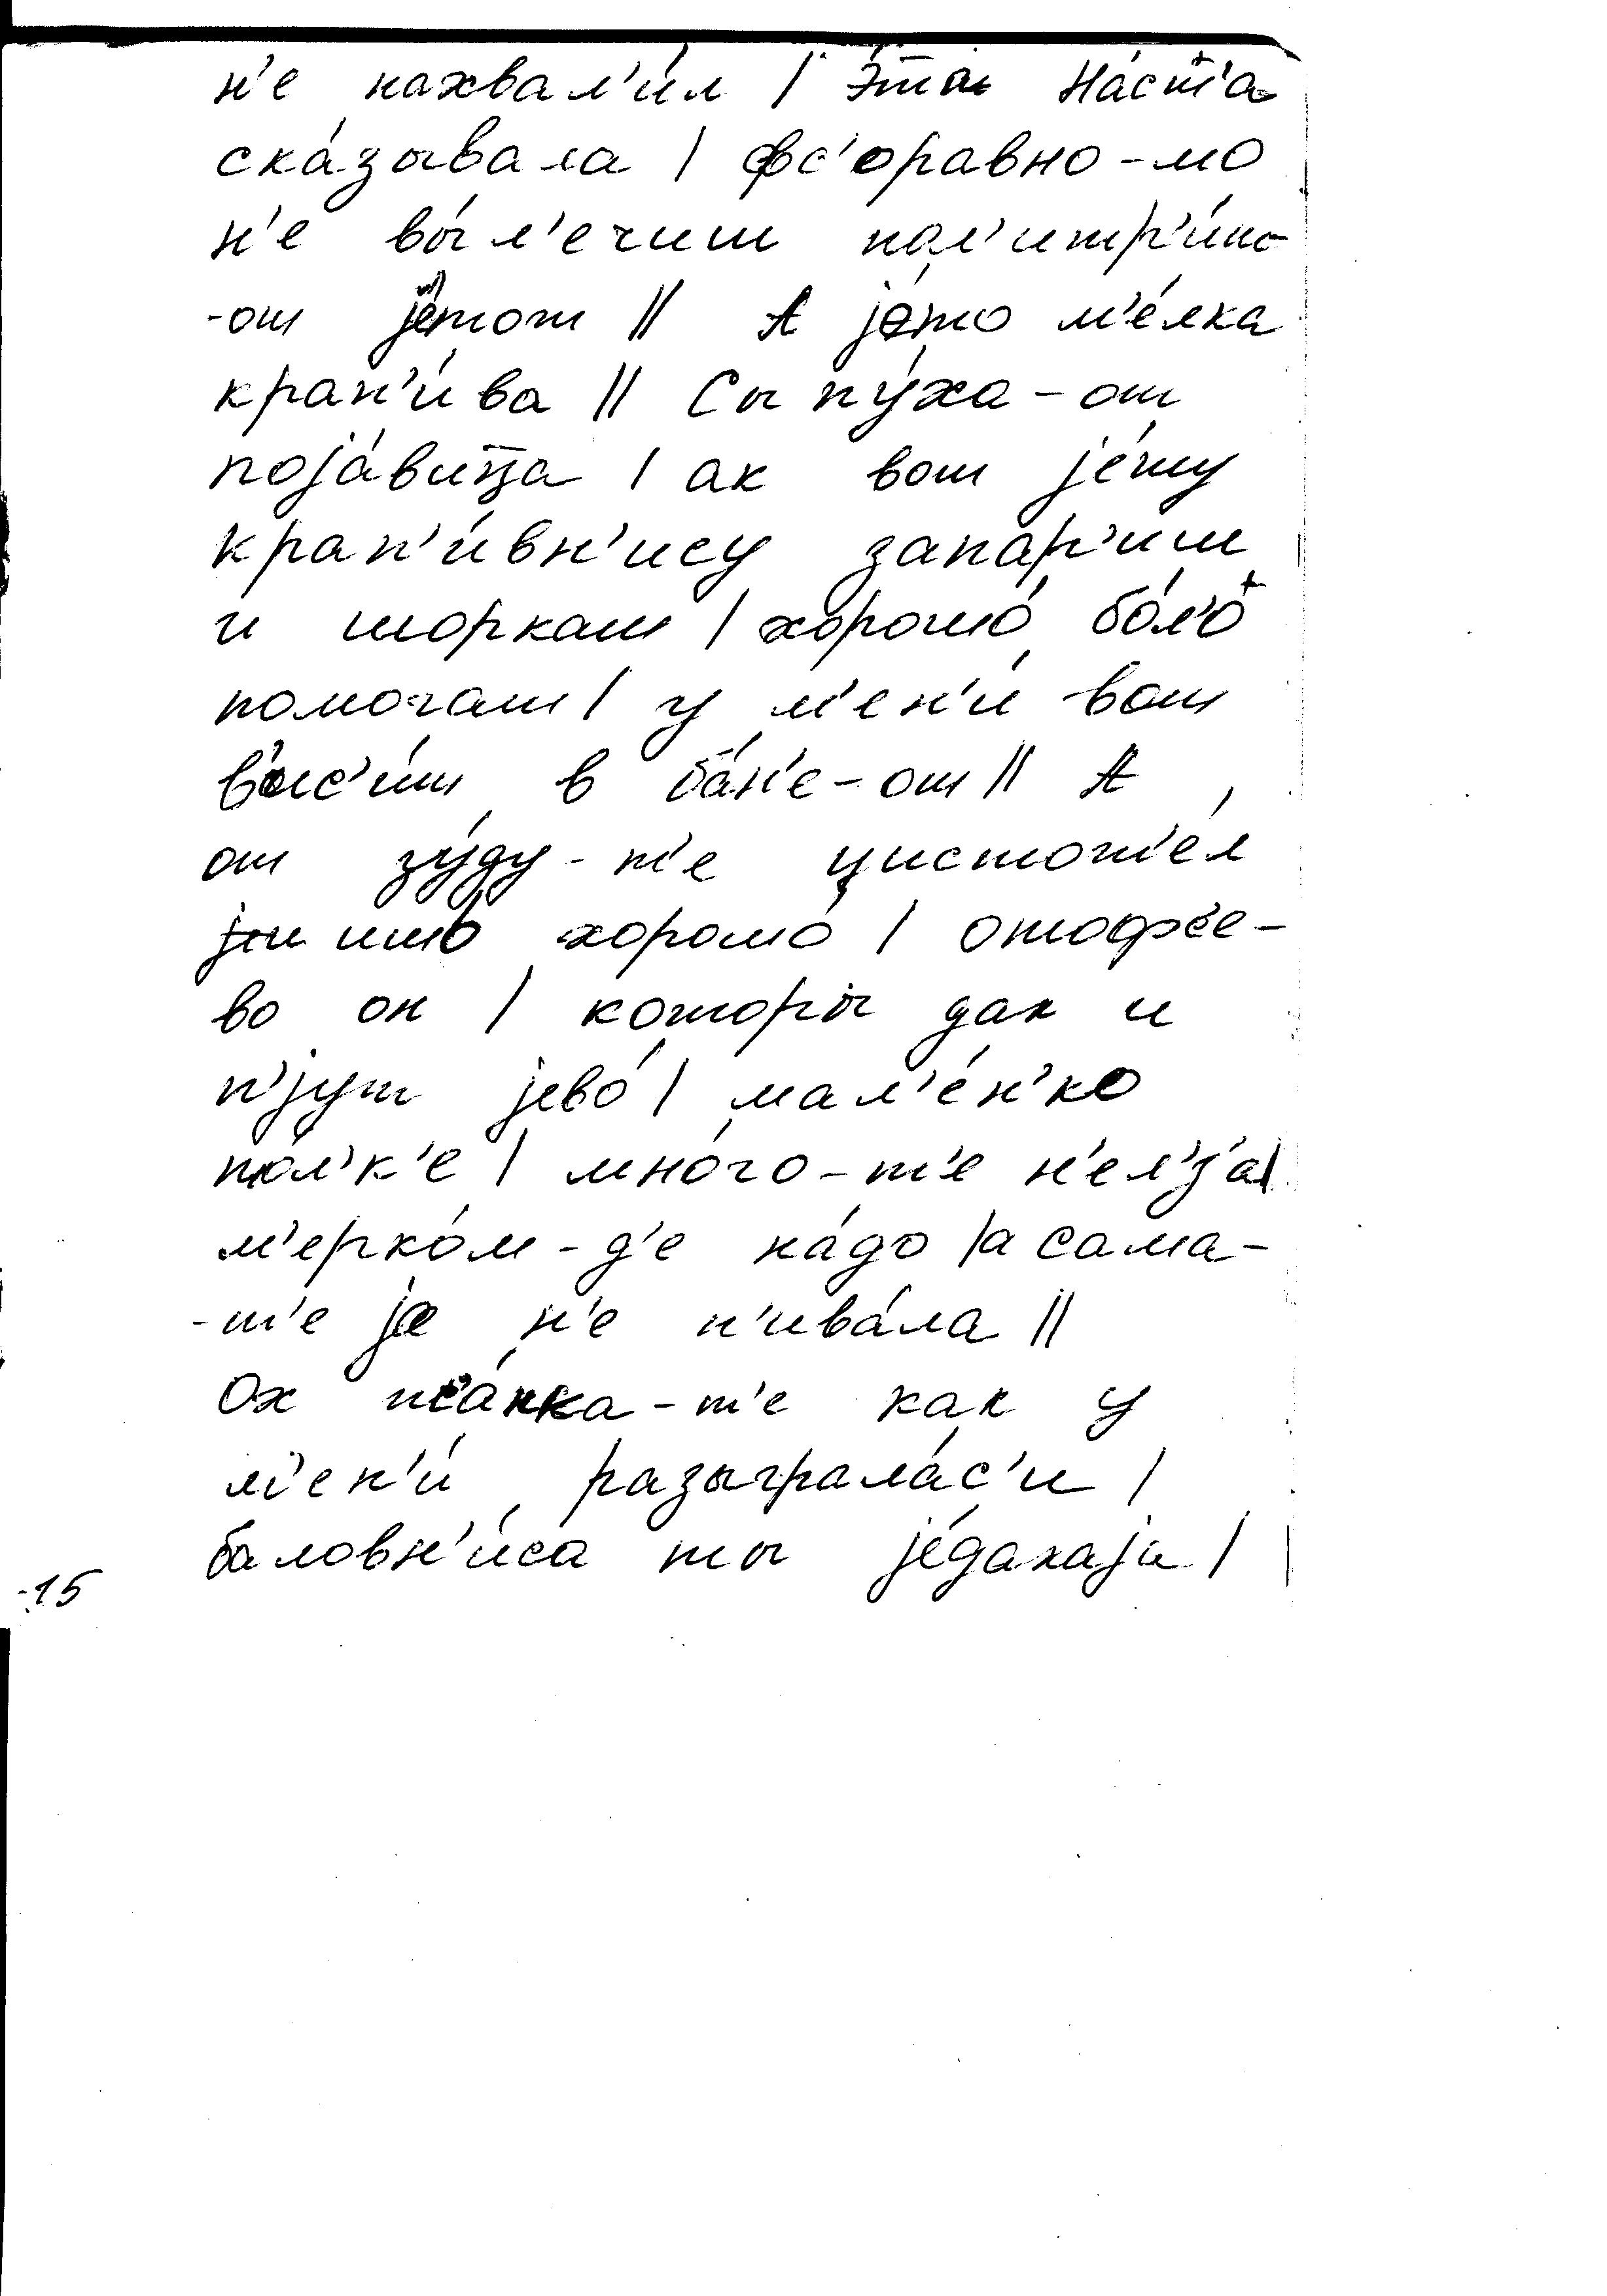 н'е нахвал'и́л / э́та На́ст'а
ска́зывала / фс'оравно-мо
н'е вы́л'ечиш пол'итр'и́но-
-от је́тот // А је́то м'е́лка
крап'и́ва // Сыпу́ха-от
појáвиц̅а / ак вот је́ту
крап'и́вн'ису запа́р'иш
и шоркаш / хорошо́ бо́л'о
помогат / у м'ен'и́ вот
в'ис'и́т в ба́н'е-от // А
от зу́ду-т'е цистот'е́л
ишто хорошо́ / отофс'е-
во он / которы́ дак и
п'јут јево́ / мал'е́н'ко
то́л'к'е / мно́го-т'е н'ел'з'а́ /
м'ерко́м-д'е на́до / а сама-
-т'е ја н'е п'ива́ла //
Ох как у
м'ен'и́ разыграла́с'и /
баловн'и́са ты је́дакаја /
-15